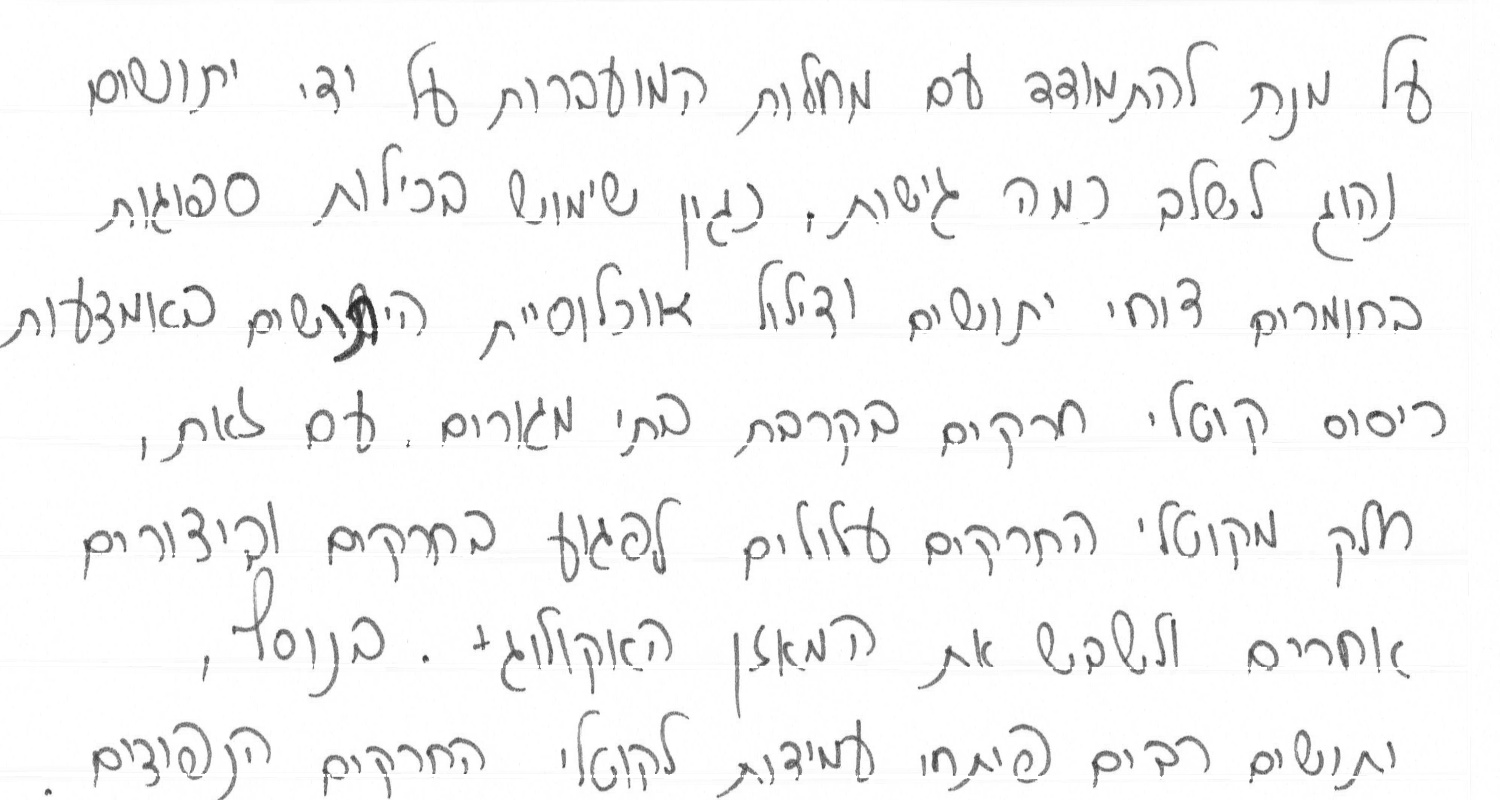 על מנת להתמודד עם מחלות המועברות על ידי יתושים
נהוג לשלב כמה גישות, כגון שימוש בכילות ספוגות
בחומרים דוחי יתושים ודילול אוכלוסיית היתושים באמצעות
ריסוס קוטלי חרקים בקרבת בתי מגורים. עם זאת,
חלק מקוטלי החרקים עלולים לפגוע בחרקים וביצורים
אחרים ולשבש את המאזן האקולוגי. בנוסף,
יתושים רבים פיתחו עמידות לקוטלי החרקים הנפוצים.